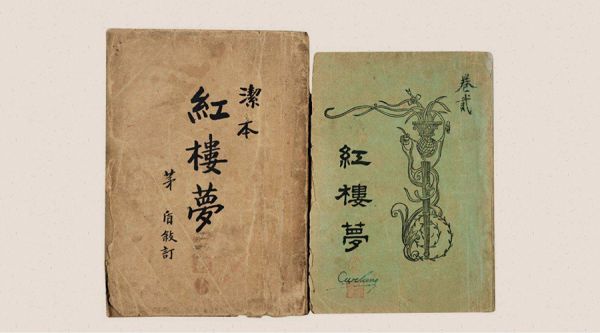 潔本
紅樓夢
茅盾敘訂
卷貳
紅樓夢